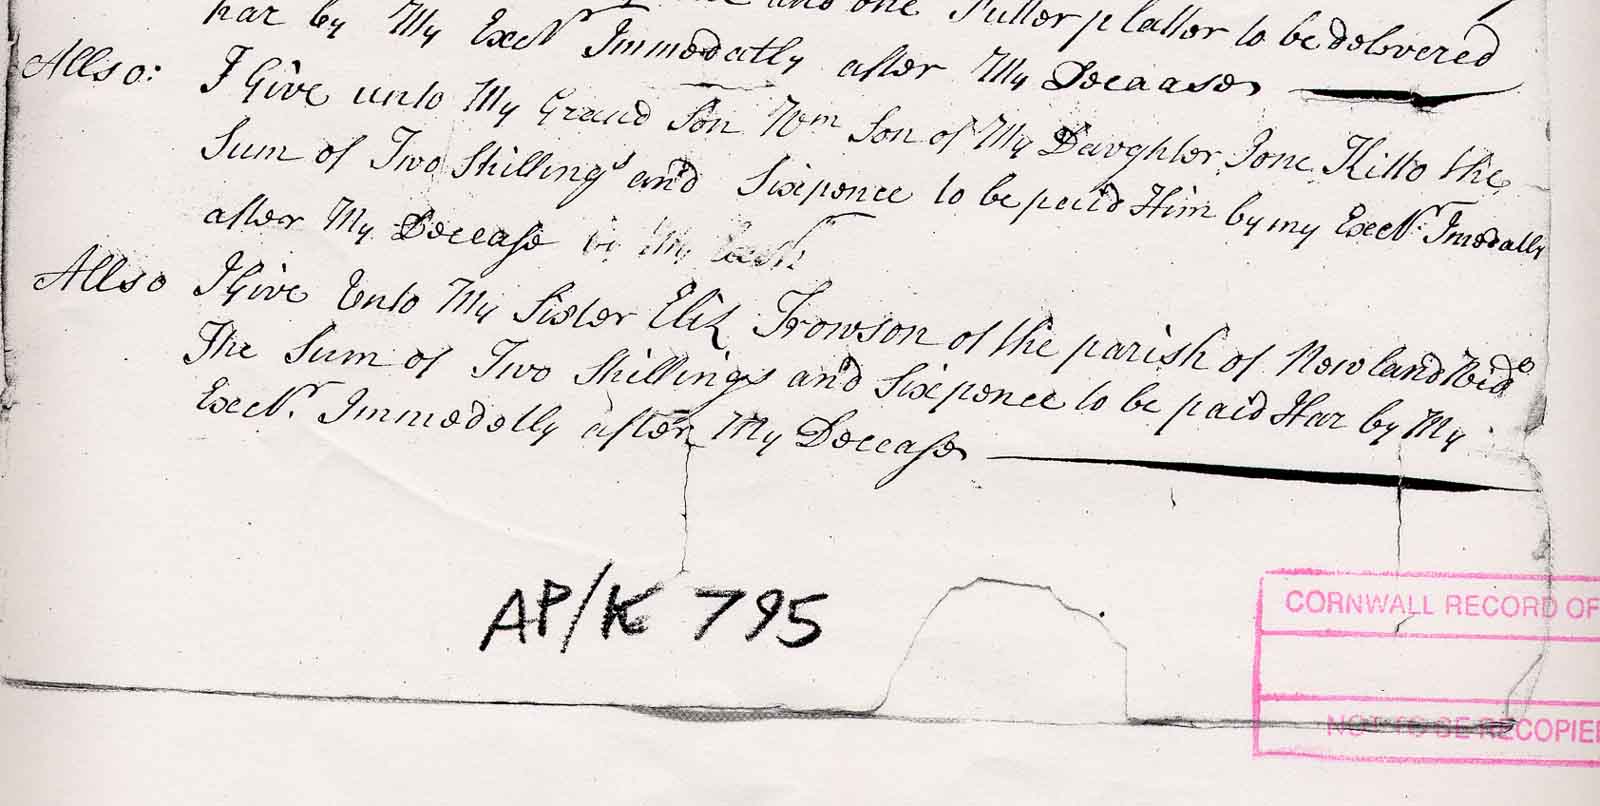 and one Putter platter to be delivered
har by My Exectr Immedatly after My Decease
Allso: I Give unto My Grand Son Wm Son of My Daughter Jone Kitto the
Sum of Two Shillings and Sixpence to be paid Him by my Exectr: Imedatly
after My Decease
Allso I Give Unto My Sister Eliz Trowson of the parish of Newland Wido
The Sum of Two Shillings and Sixpence to be paid Har by My
Exectr. Immedetly after My Decease
AP/K 795
CORNWALL RECORD OF
NOT TO BE RECOPIE